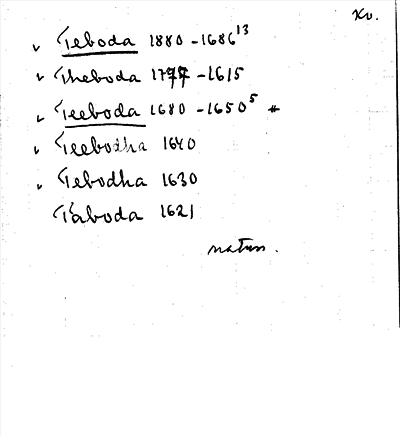 Kv.
Teboda 1880 - 1686 13
Theboda 1777 - 1615
Teeboda 1680 - 1650 5 *
Teebodha 1640
Tebodha 1630
Taboda 1621